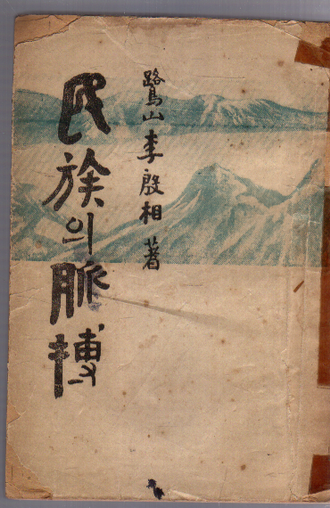 鷺山 李殷相 著
民族의 脈搏